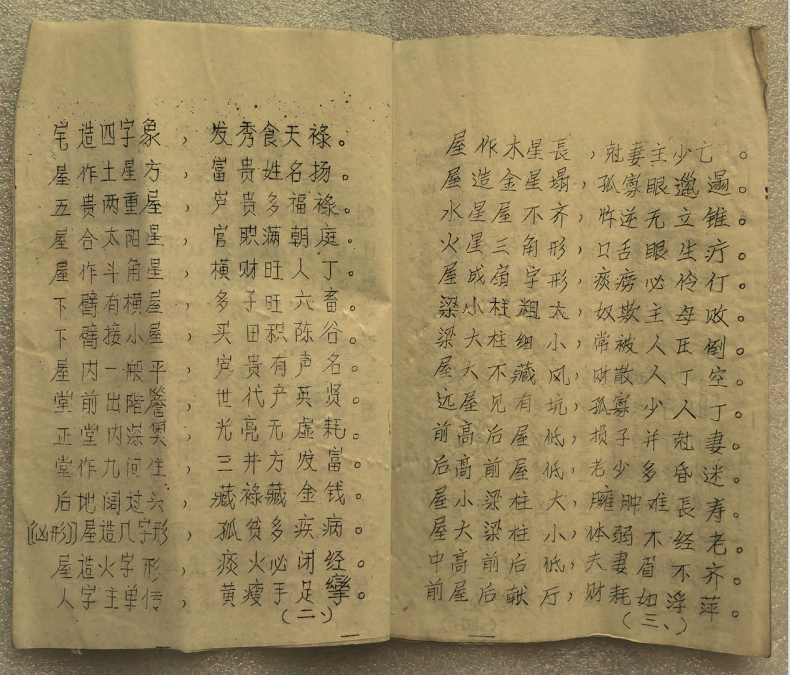 宅造四字象，发秀食天禄。
屋作土星方，富贵姓名扬。
五贵两重屋，岁贵多福禄。
屋合太阳星，官职满朝庭。
屋作斗角星，横财旺人丁。
下臂有横屋，多子旺六畜。
下臂接小屋，买田积陈谷。
屋内一般平，岁贵有声名。
堂前出阶詹，世代产英贤。
正堂内深奥，光亮无虚耗。
堂作九间住，三井方发富。
后地阔过头，藏禄藏金钱。
(凶形)屋造几字形，孤贫多疾病。
屋造火字形，痰火必闭经。
人字主单传，黄瘦手足挛。
(二、)
屋作木星長，尅妻主少亡。
屋造金星塌，孤寡眼邋遢。
水星屋不齐，忤逆无立锥。
火星三角形，口舌眼生疔。
屋成扇字形，痰痨必伶仃。
梁小柱粗太，奴欺主母败。
梁大柱细小，常被人压倒。
屋大不藏风，财散人丁空。
远屋见有坑，孤寡少人丁
前高后屋低，损子并尅妻。
后高前屋低，老少多昏迷
屋小梁柱大，臃肿难長寿。
屋大梁柱小，体弱不经老。
中高前后低，夫妻不齐。
前屋后献厅，财耗如浮萍。
(三、)